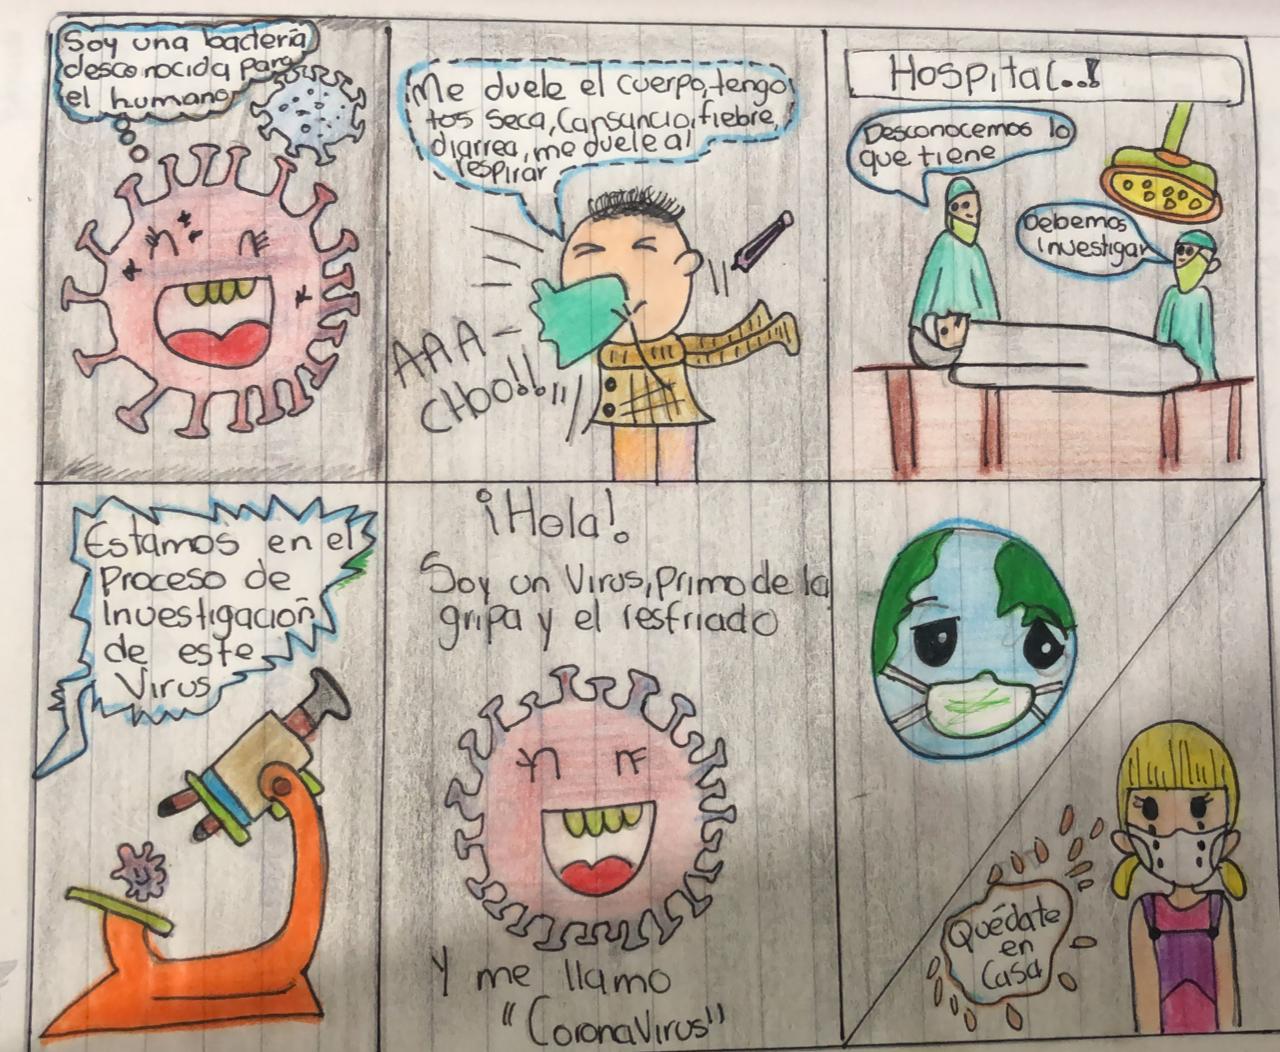 Soy una bacteria
desconocida para
el humano
Me duele el cuerpo, tengo
tos seca, Cansancio, fiebre,
diarrea, me duele al
respirar
AAA-
CHOO!!
Hospital..!
Desconocemos lo
que tiene
Debemos
investigar
Estamos en el
Proceso de
Investigación
de este
Virus
¡Hola!
Soy un Virus, Primo de la
gripa y el resfriado
Y me llamo
"CoronaVirus"
Quédate
en
Casa